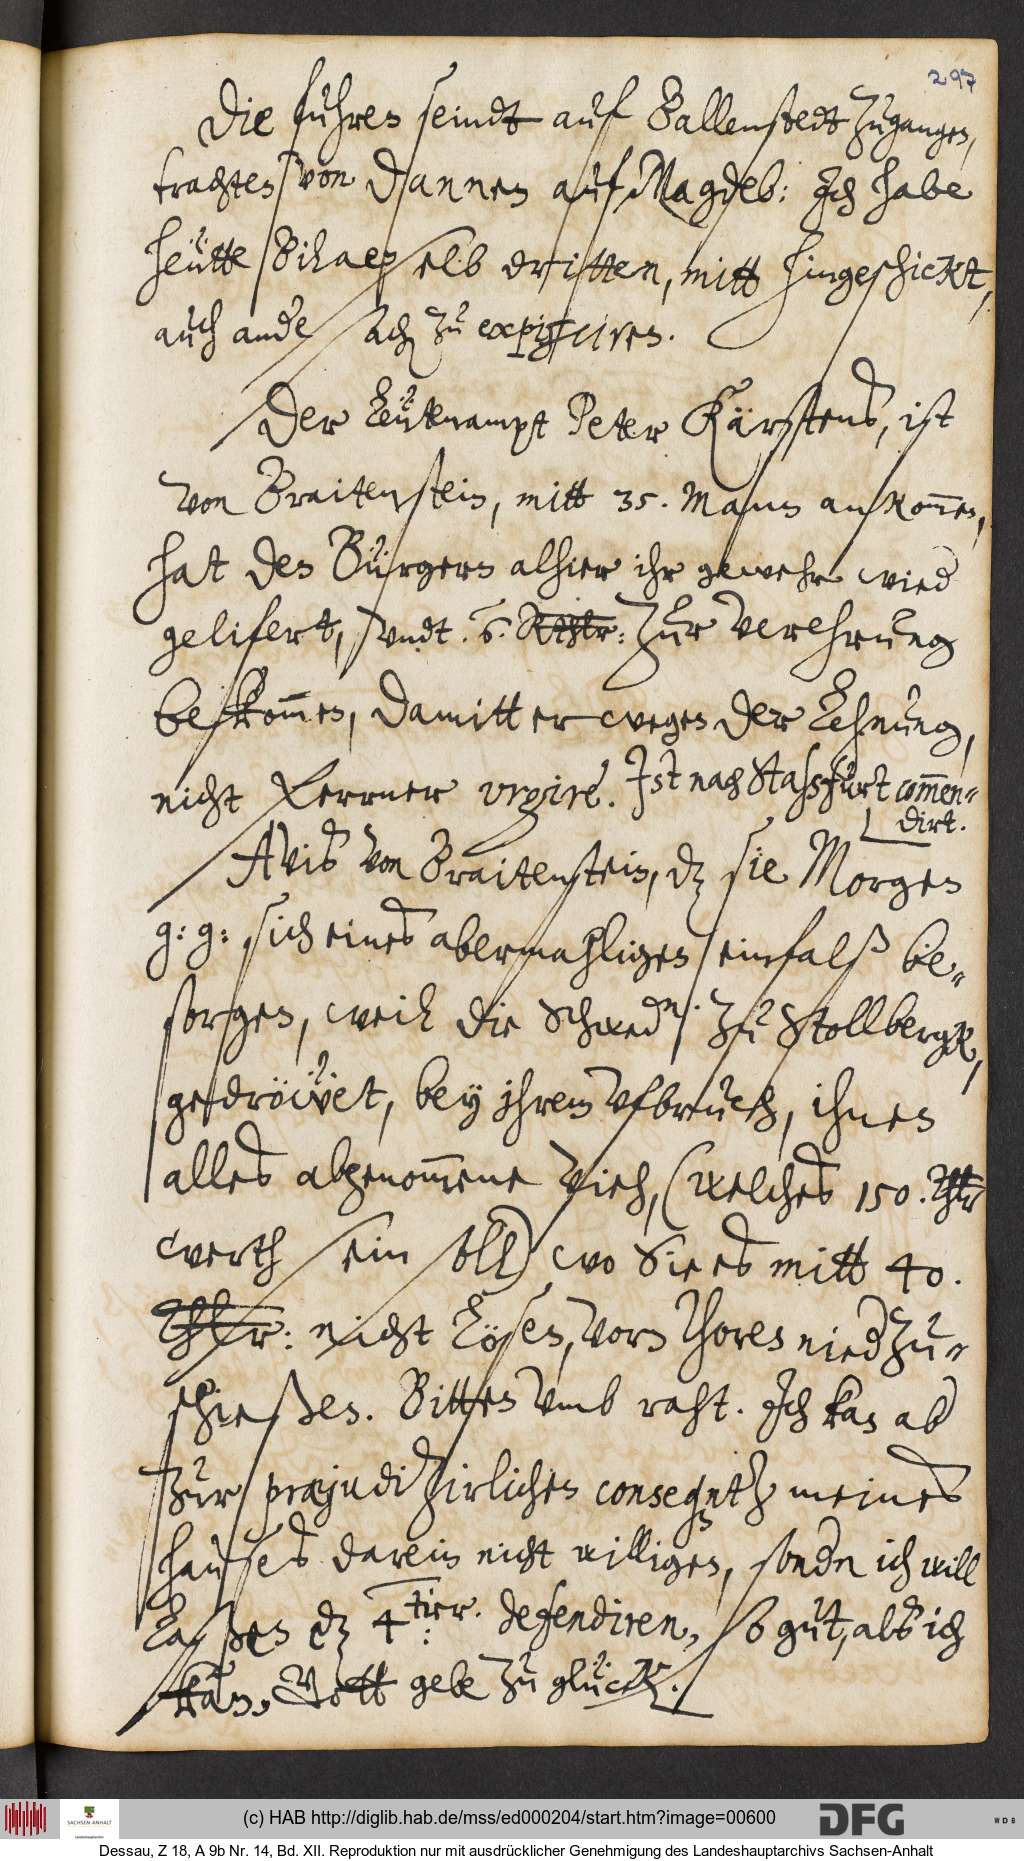 297
Die fuhren seindt auf Ballenstedt zugangen,
trachten von dannen auf Magdeb: Ich habe
heütte Bihaer selb dritten, mitt hingeschickt,
auch and sach zu expisciren.
Der Leütenampt Peter Kärstens, ist
von Braitenstein, mitt 35. Mann ankommen,
hat den Bürgern alhier ihr gewehr wied
gelifert, vndt 6. Rthlr: zur verehrung
bekommen, damitt er wegen der Lehnung,
nicht ferrner urgire. Ist nach Staßfurt commen-
dirt.
Avis von Braitenstein, dz sie Morgen
g: g: sich eines abermahligen einfalß be-
sorgen, weil die Schwedn. zu Stollbergk,
gedröwet, bey ihrem Ufbruch, ihnen
alles abgenommene Vieh, (welches 150. Thlr
werth sein soll) wo Sie es mitt 40.
Thlr: nicht lösen, vorm Thoren nied zu-
schießen. Bitten vmb raht. Ich kan ab
zur præjudizirlichen consegntz meines
hauses darein nicht willigen, sondn ich will
laßen dz 4tier. defendiren, so gut, als ich
kan, Gott gebe zu glück.
(c) HAB http://diglib.hab.de/mss/ed000204/start.htm?image=00600
SACHSEN-ANHALT
DFG
WDB
Dessau, Z 18, A 9b Nr. 14, Bd. XII. Reproduktion nur mit ausdrücklicher Genehmigung des Landeshauptarchivs Sachsen-Anhalt